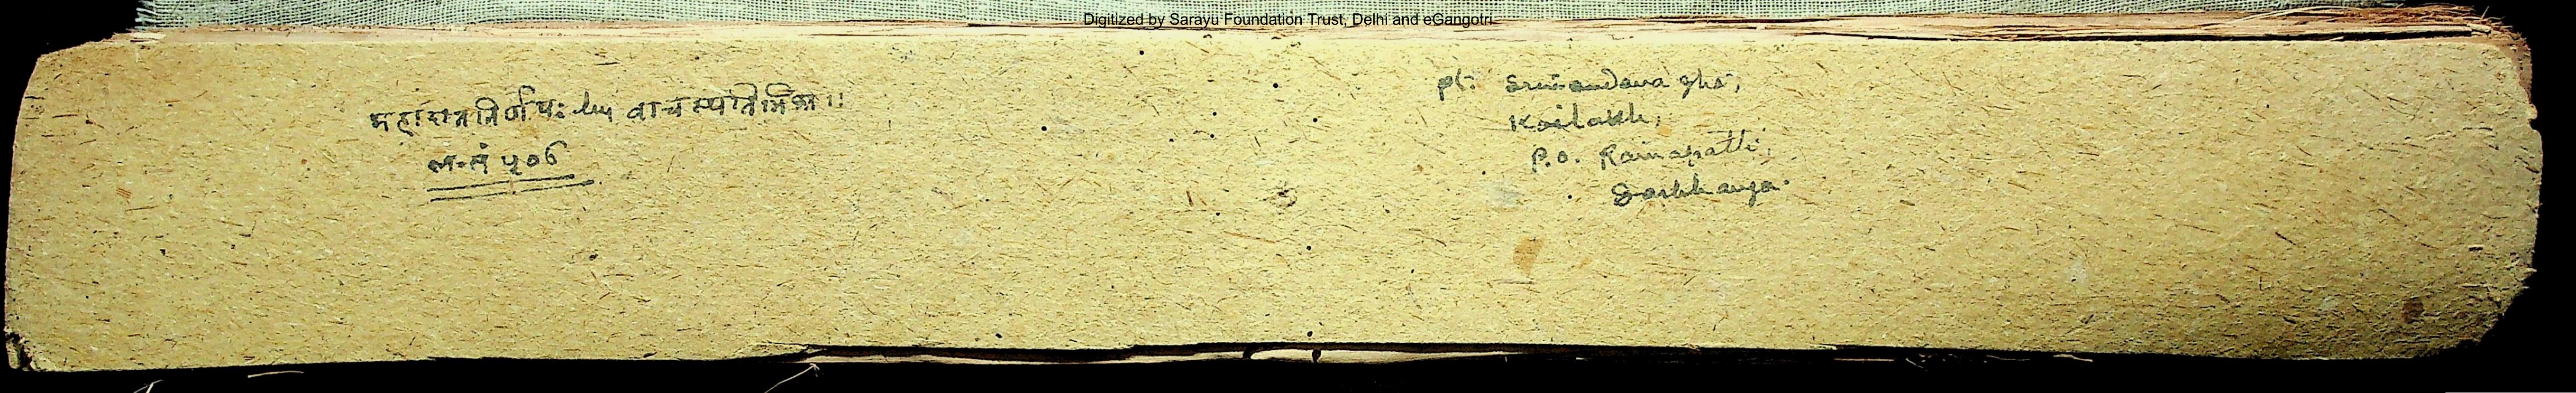 Digitized by Sarayu Foundation Trust, Delhi and eGangotri
महादाननिर्णयः by वाचस्पतिमिश्र ॥
ल.सं ५०६
pt. Srinandana Jha,
Koilakh,
P.O. Ramapatti,
Darbhanga.